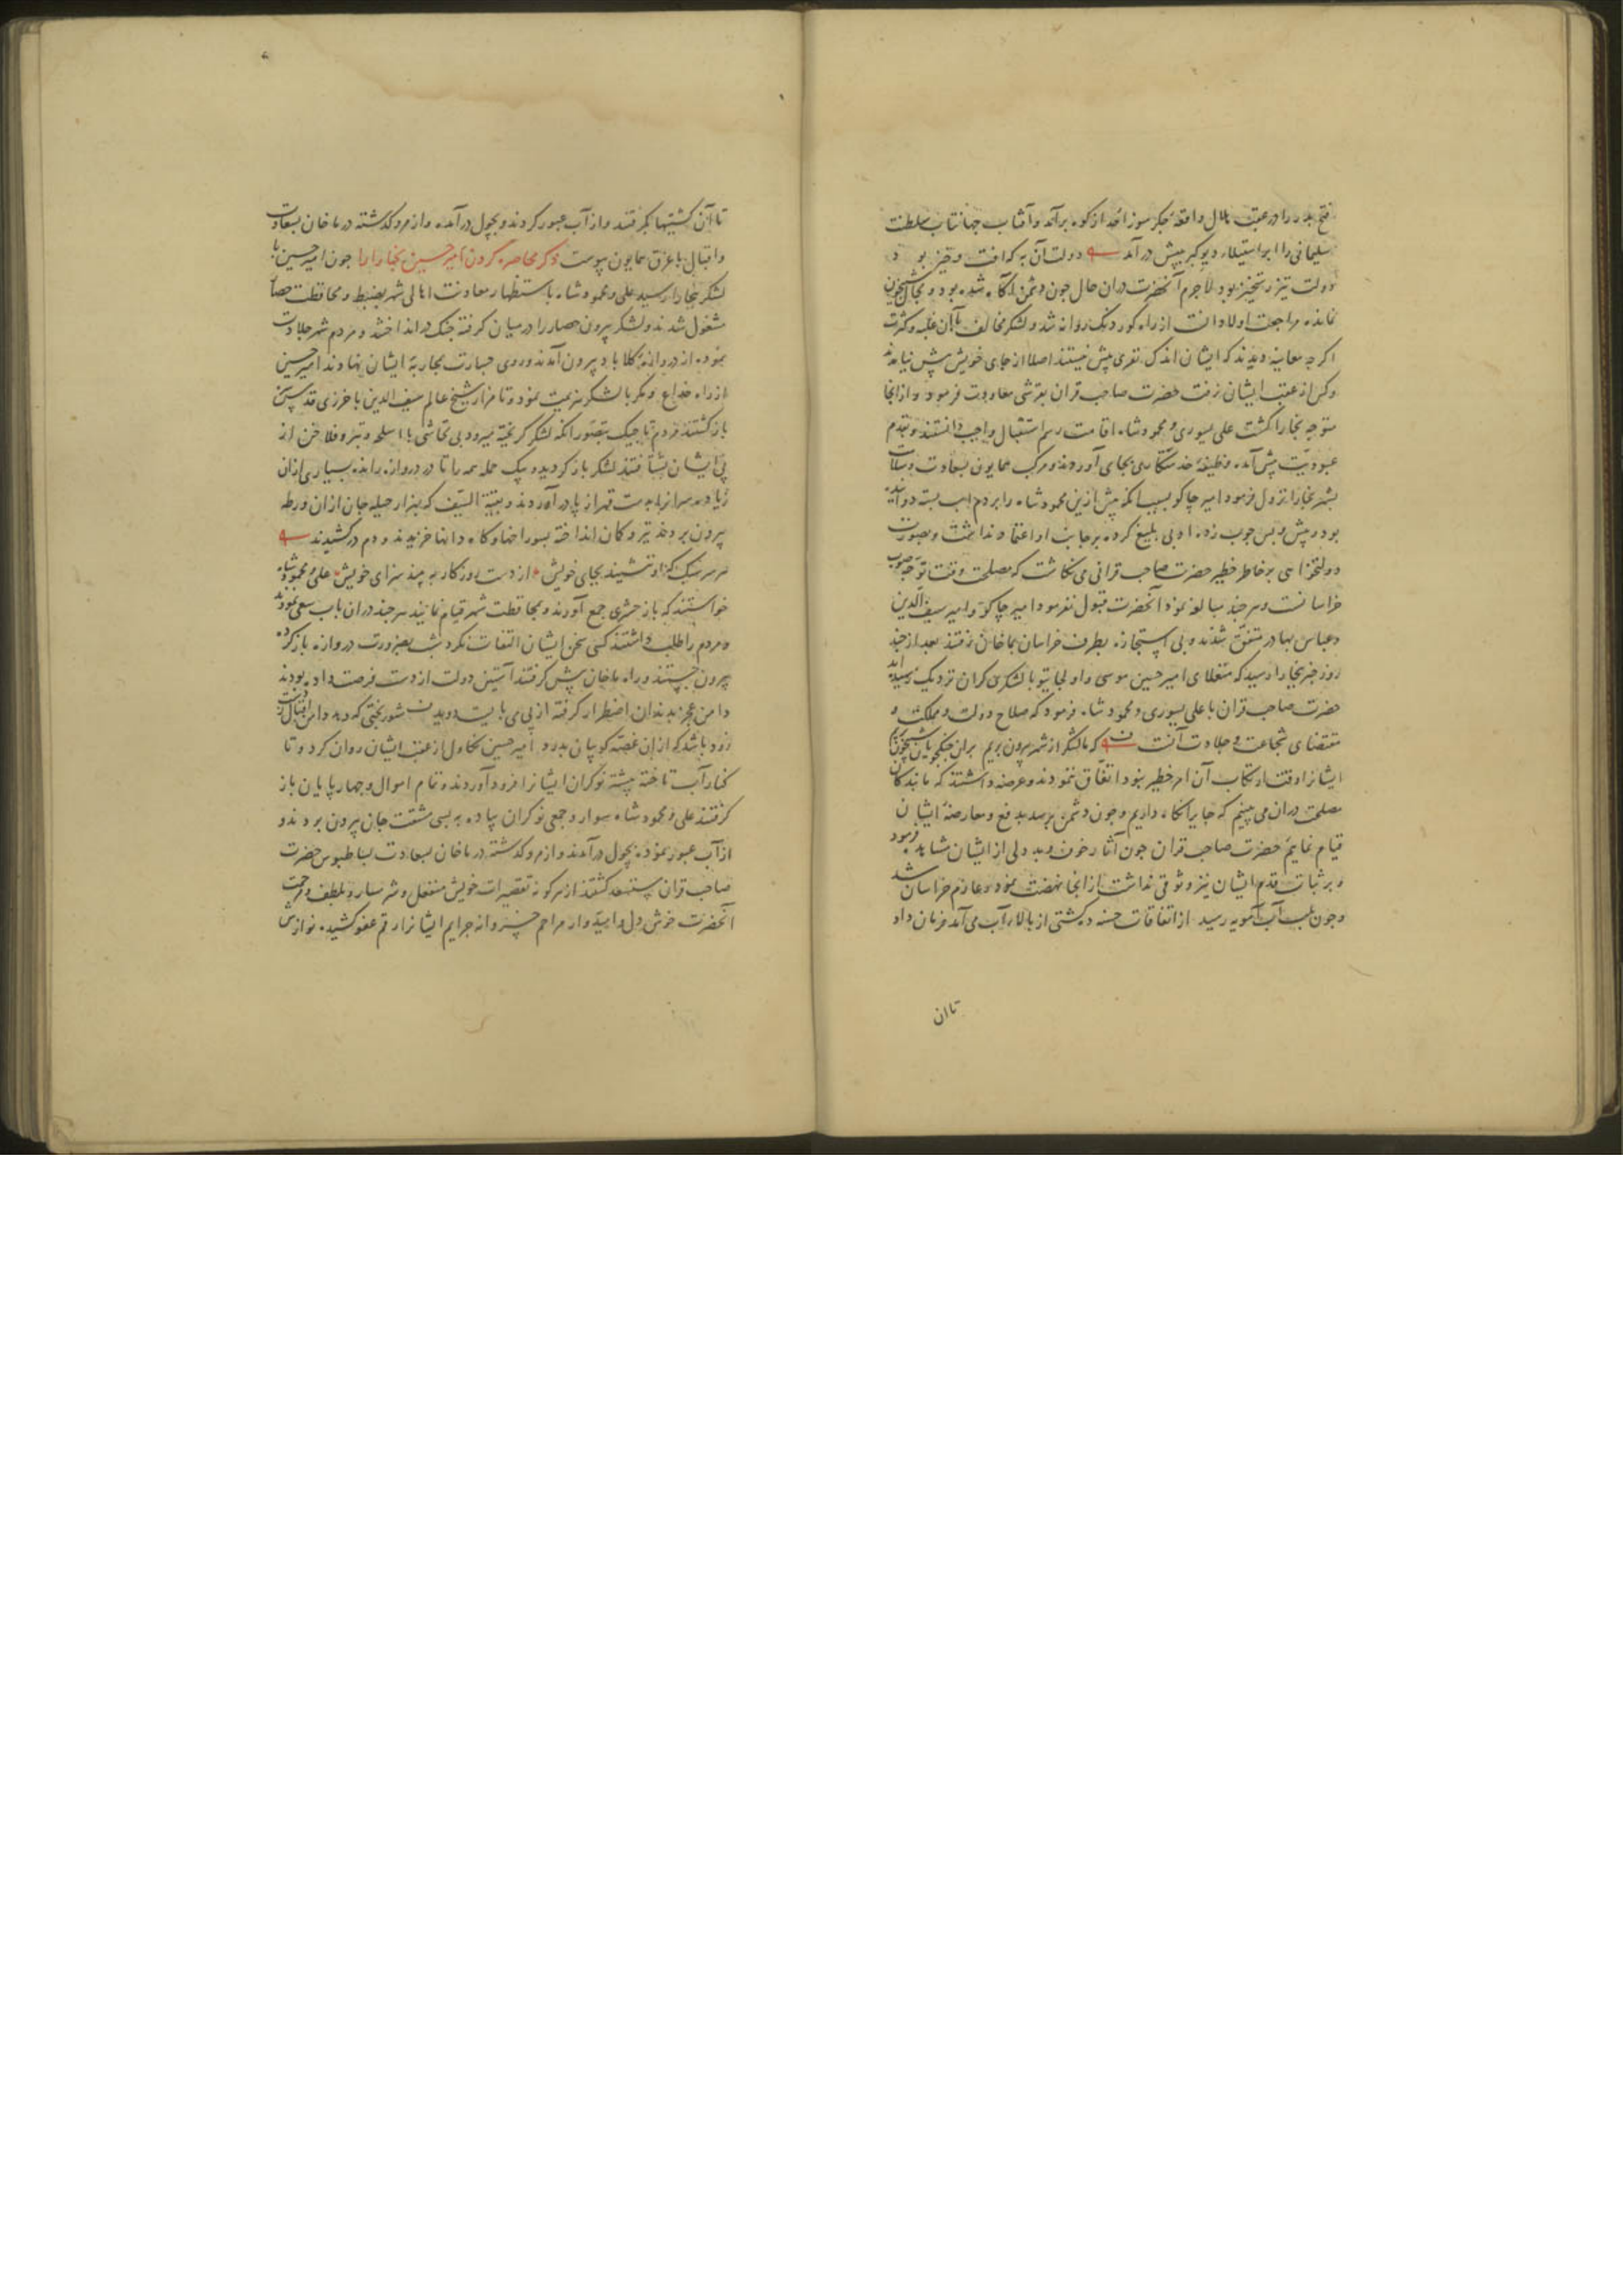 فتح بدر را در عقب ملال واقعهٔ جگر سوز احد از کوه برآمد و آفتاب جهانتاب سلطنت
سلیمانی را ابر استیلاء دیو کبر پیش در آمد دولت آن به که افت و خیز بود
دولت تیز رستخیز بود لاجرم آنحضرت در آن حال چون دشمن آگاه شده بود و مجال شبیخون
نمانده مراجعت اولا دانست از راه کوردنک روانه شد و لشکر مخالف با آن غلبه و کثرت
اگر چه معاینه دیدند که ایشان اندک نفری بیش نیستند اصلا از جای خویش پیش نیامدند
و کس از عقب ایشان نرفت حضرت صاحب قران بقرشی معاودت فرمود و از انجا
متوجه بخارا گشت علی یسوری و محمودشاه اقامت رسم استقبال واجب دانستند و بقدم
عبودیت پیش آمده وظیفهٔ خدمتکاری بجای آوردند و مرکب همایون بسعادت و سلامت
بشهر بخارا نزول فرمود امیر چاکو بسبب انکه پیش ازین محمودشاه را بر دم اسب بسته دوانیده
بود و پیش و پس چوب زده ادبی بلیغ کرده بر جانب او اعتماد نداشت و بصورت
دولتخواهی بر خاطر خطیر حضرت صاحب قرانی می نکاشت که مصلحت وقت توجه بصوب
خراسانست و هر چند مبالغه نمود آنحضرت قبول نفرمود امیر چاکو و امیر سیف الدین
و عباس بهادر متفق شدند و بی استجازه بطرف خراسان بماخان رفتند بعد از چند
روز خبر ببخارا رسید که منغلای امیر حسین موسی و اولجایتو با لشکری گران نزدیک رسیده اند
حضرت صاحب قران با علی یسوری و محمودشاه فرمود که صلاح دولت و مملکت و
مقتضای شجاعت و جلادت آنست که با لشکر از شهر بیرون بریم بران جنگجویان شبیخون
ایشانرا وقت ارتکاب آن امر خطیر نبود اتفاق ننمودند و عرضه داشتند که ما بندگان
مصلحت دران می بینیم که جا برانکاه داریم و چون دشمن برسد بدفع و معارضهٔ ایشان
قیام نمایم حضرت صاحب قران چون آثار خوف و بددلی از ایشان مشاهده فرمود
و بر ثبات قدم ایشان نیز وثوقی نداشت از انجا نهضت نمود و عازم خراسان شد
و چون بلب آب آمویه رسید از اتفاقات حسنه دو کشتی از بالاء آب می آمد فرمان داد
تا ان
تا آن کشتیها بگرفتند و از آب عبور کردند و بچول در آمده و از مرو گذشته در ماخان بسعادت
و اقبال با عزق همایون پیوست ذکر محاصره کردن امیر حسین بخارا را چون امیر حسین با
لشکر ببخارا رسید علی و محمودشاه باستظهار معاونت اهالی شهر بضبط و محافظت حصار
مشغول شدند و لشکر بیرون حصار را در میان گرفته جنک در انداختند و مردم شهر جلادت
نموده از دروازهٔ کلاباد بیرون آمدند و روی جسارت بمحاربهٔ ایشان نهادند امیر حسین
از راه خداع و مکر با لشکر هزیمت نمود و تا مزار شیخ عالم سیف الدین باخرزی قدس سره
باز گشتند مردم تاجیک بتصور انکه لشکر گریخته میرود بی تحاشی با اسلحه و تیر و فلاخن از
پی ایشان بشتافتند لشکر باز گردید و بیک حمله همه را تا در دروازه براند بسیاری ازان
زیاده سرانرا بدست قهر از پا در آوردند و بقیة السیف که بهزار حیله جان ازان ورطه
بیرون بردند تیر و کمان انداخته بسوراخها و کاه دانها خزیدند و دم در کشیدند
هر سبک کو ننشیند بجای خویش از دست روزگار به بیند سزای خویش علی و محمودشاه
خواستند که باز حشری جمع آورند و بمحافظت شهر قیام نمایند هر چند دران باب سعی نمودند
و مردم را طلب داشتند کسی بسخن ایشان التفات نکرد شب بضرورت دروازه باز کرده
بیرون جستند و راه ماخان پیش گرفتند آستین دولت از دست فرصت داده بودند
دامن عجز بدندان اضطرار گرفته از پی می بایست دوید شوربختی که دهد دامن اقبال ز دست
زود باشد که ازین غصه گریبان بدرد امیر حسین تکاول از عقب ایشان روان کرد و تا
کنار آب تاخته بیشتر نوکران ایشانرا فرود آوردند و تمام اموال و چهارپایان باز
گرفتند علی و محمودشاه سوار و جمعی نوکران پیاده به بسی مشقت جان بیرون بردند و
از آب عبور نموده بچول در آمدند و از مرو گذشته در ماخان بسعادت بساط بوس حضرت
صاحب قران مستسعد گشتند از هر گونه تقصیرات خویش منفعل و شرمسار و بلطف و مرحمت
آنحضرت خوش دل و امیدوار مراحم خسروانه جرایم ایشانرا رقم عفو کشیده نوازش